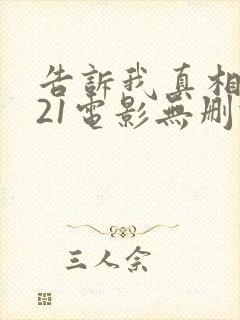 告訴我真相
21電影無刪
三人余